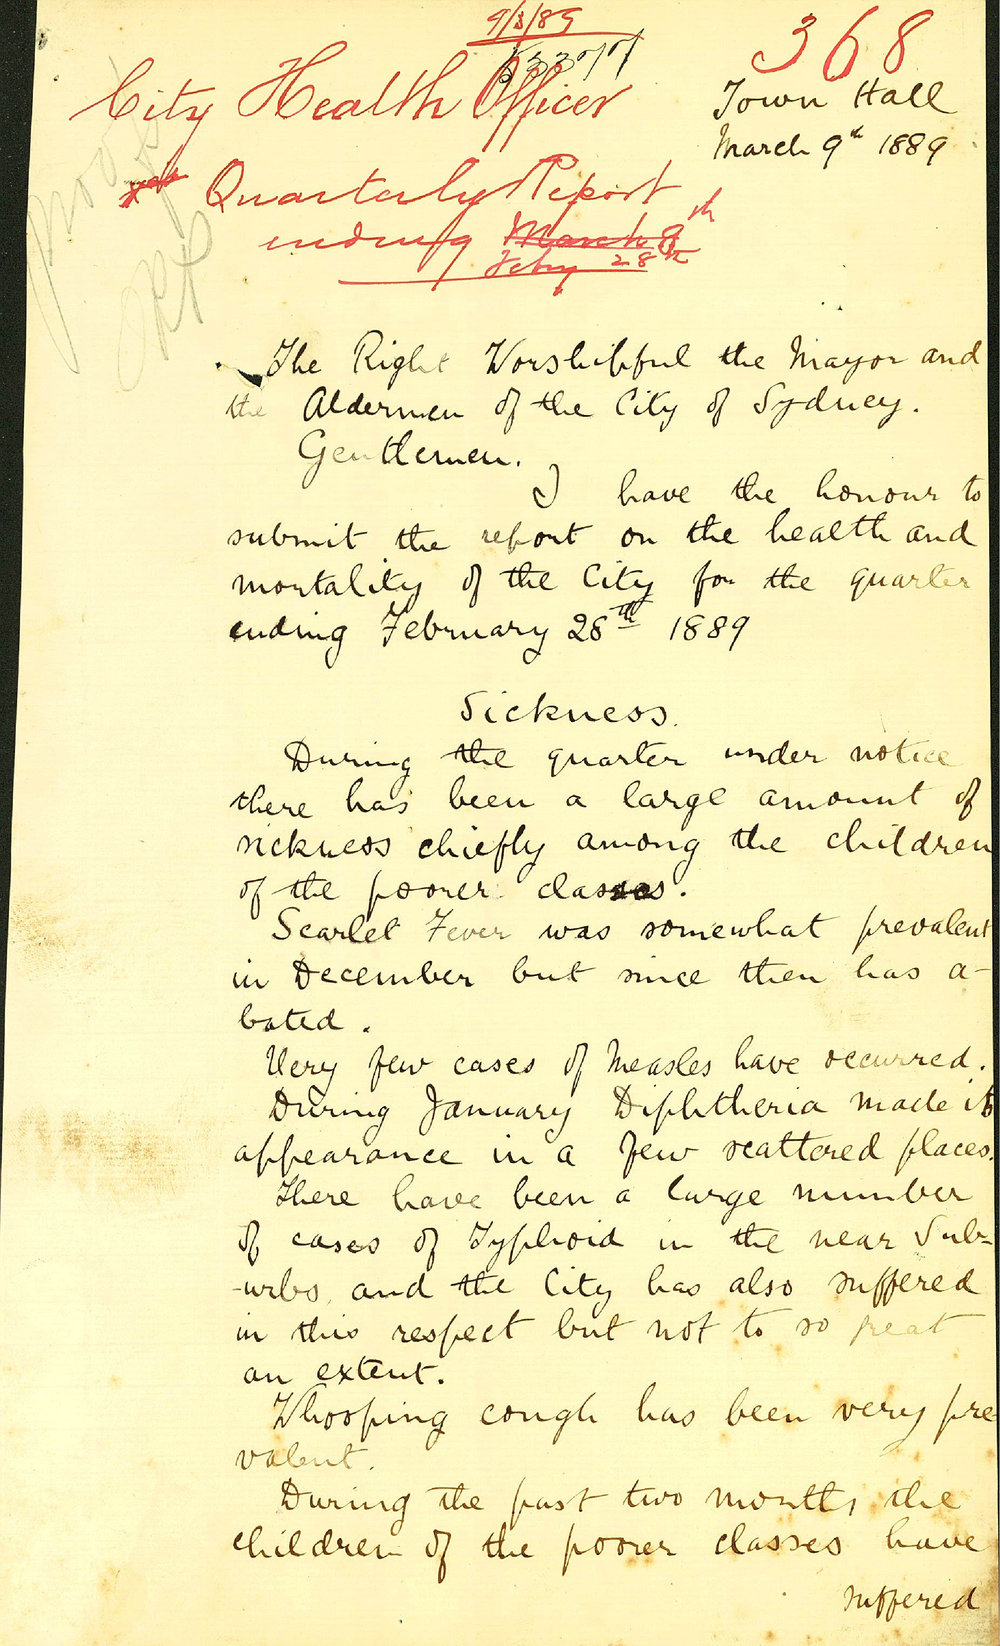 9/3/89
368
City Health Officer
Town Hall
March 9th 1889
Quarterly Report
ending March 9th
Feby 28th
The Right Worshipful the Mayor and
the Aldermen of the City of Sydney.
Gentlemen.
I have the honour to
submit the report on the health and
mortality of the City for the quarter
ending February 28th 1889
Sickness.
During the quarter under notice
there has been a large amount of
sickness chiefly among the children
of the poorer classes.
Scarlet Fever was somewhat prevalent
in December but since then has a-
bated.
Very few cases of Measles have occurred.
During January Diphtheria made its
appearance in a few scattered places.
There have been a large number
of cases of Typhoid in the near Sub-
-urbs, and the City has also suffered
in this respect but not to so great
an extent.
Whooping cough has been very pre
valent.
During the past two months the
children of the poorer classes have
suffered